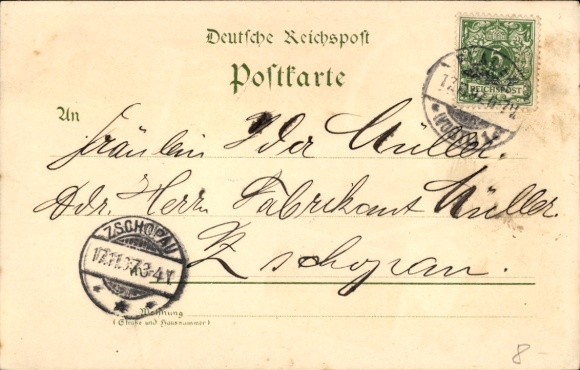 Deutsche Reichspost
Postkarte
5
REICHSPOST
An
Fräulein Ida Müller.
Adr. Herrn Fabrikant Müller.
Zschopau.
ZSCHOPAU
17.11.97. 3-4 N
Wohnung
(Straße und Hausnummer)
8-